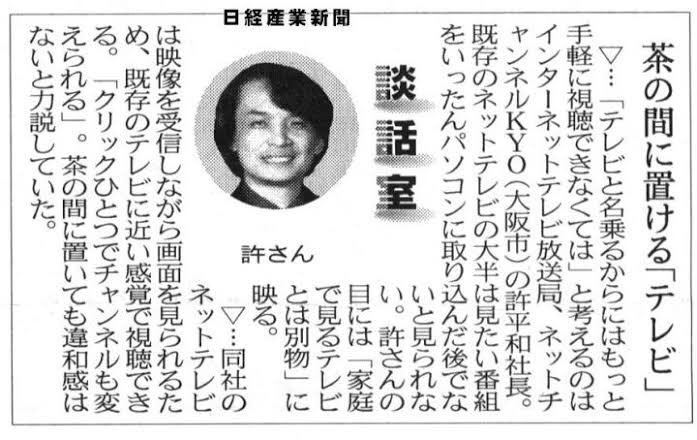 日経産業新聞
茶の間に置ける「テレビ」
談話室
▽…「テレビと名乗るからにはもっと
手軽に視聴できなくては」と考えるのは
インターネットテレビ放送局、ネットチ
ャンネルKYO（大阪市）の許平和社長。
既存のネットテレビの大半は見たい番組
をいったんパソコンに取り込んだ後でな
いと見られな
い。許さんの
目には「家庭
で見るテレビ
とは別物」に
映る。
▽…同社の
ネットテレビ
は映像を受信しながら画面を見られるた
め、既存のテレビに近い感覚で視聴でき
る。「クリックひとつでチャンネルも変
えられる」。茶の間に置いても違和感は
ないと力説していた。
許さん